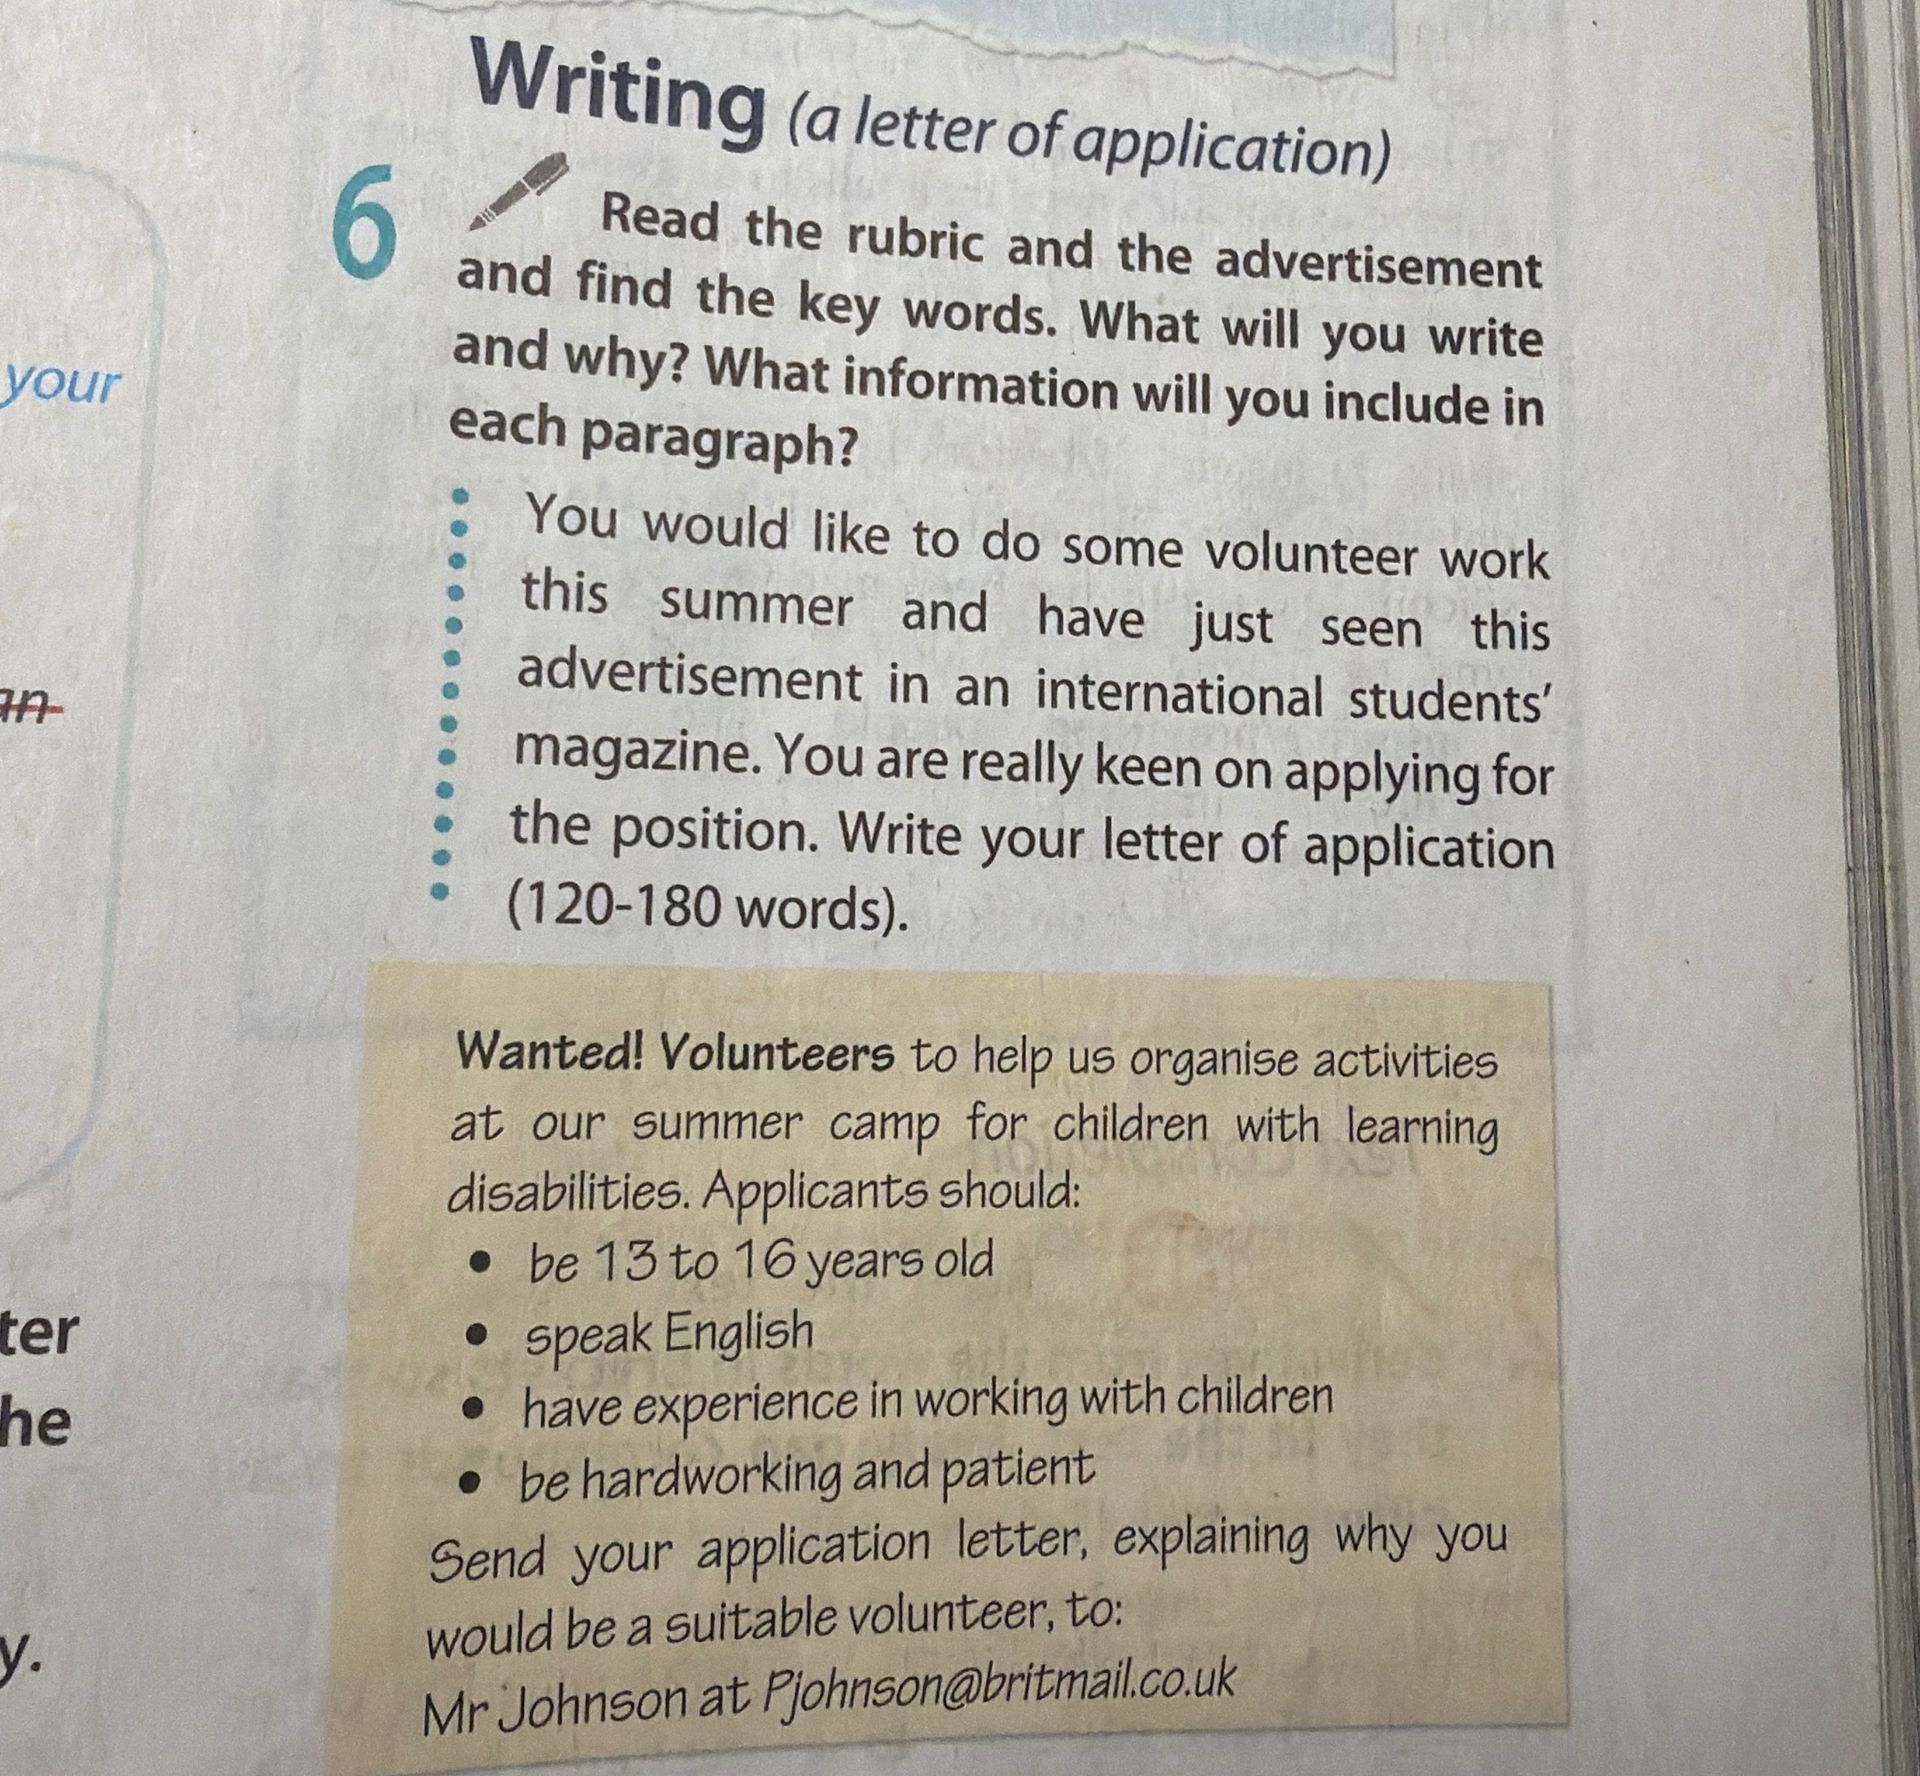 Writing (a letter of application)
6 Read the rubric and the advertisement
and find the key words. What will you write
and why? What information will you include in
each paragraph?
You would like to do some volunteer work
this summer and have just seen this
advertisement in an international students'
magazine. You are really keen on applying for
the position. Write your letter of application
(120-180 words).
Wanted! Volunteers to help us organise activities
at our summer camp for children with learning
disabilities. Applicants should:
• be 13 to 16 years old
• speak English
• have experience in working with children
• be hardworking and patient
Send your application letter, explaining why you
would be a suitable volunteer, to:
Mr Johnson at Pjohnson@britmail.co.uk
your
ter
he
y.